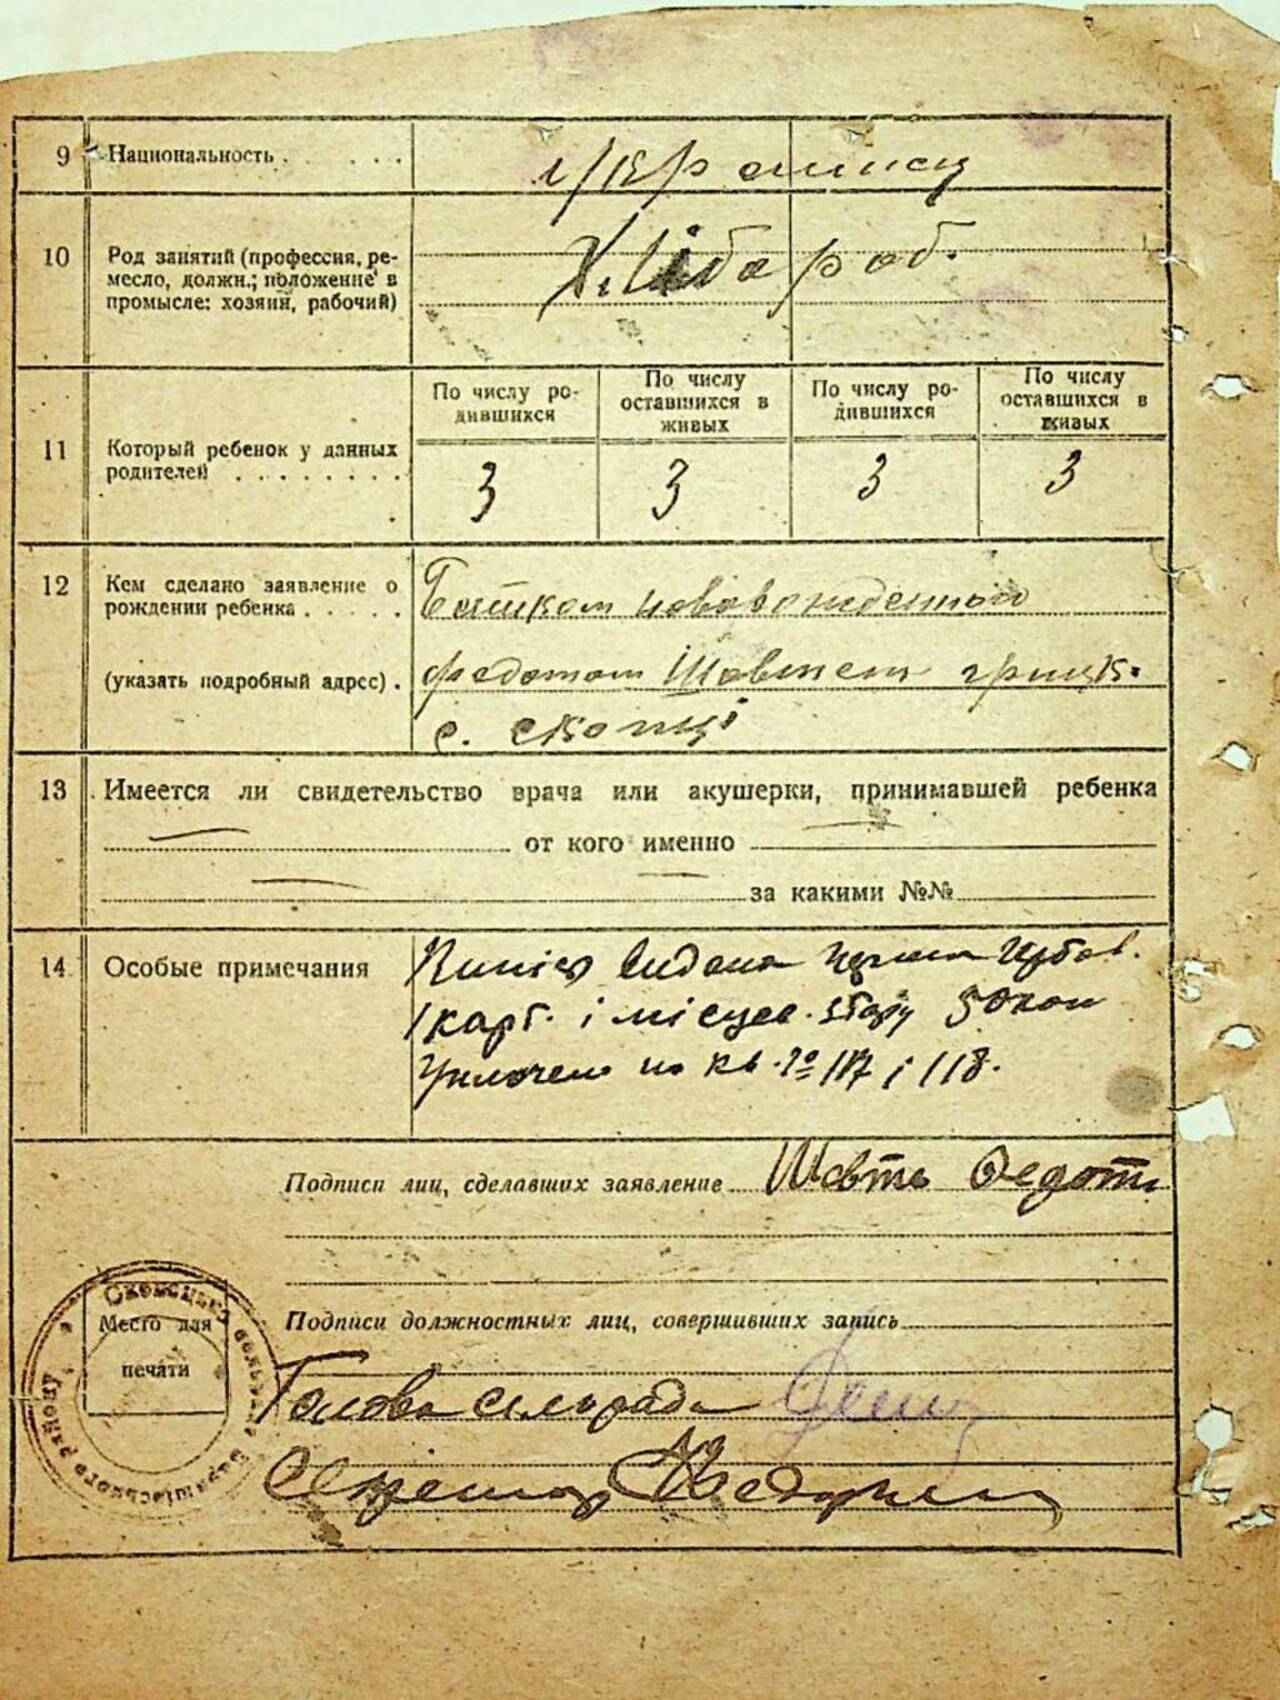 9 Национальность . . . . .
Українці
10 Род занятий (профессия, ре-
месло, должн.; положение в
промысле: хозяин, рабочий)
Хлібороб.
11 Который ребенок у данных
родителей . . . . . . . .
По числу ро-
дившихся
По числу
оставшихся в
живых
По числу ро-
дившихся
По числу
оставшихся в
живых
3 3 3 3
12 Кем сделано заявление о
рождении ребенка . . . . .
(указать подробный адрес) .
Батьком
Федотом Шовтем Грицк.
с. Скопці
13 Имеется ли свидетельство врача или акушерки, принимавшей ребенка
от кого именно
за какими №№
14 Особые примечания
видана
карт. і місцев. збору 50 коп
Уплочено по кв. № 117 і 118.
Подписи лиц, сделавших заявление Шовть Федот
Место для
печати
Подписи должностных лиц, совершивших запись
Голова сільради
Секретар